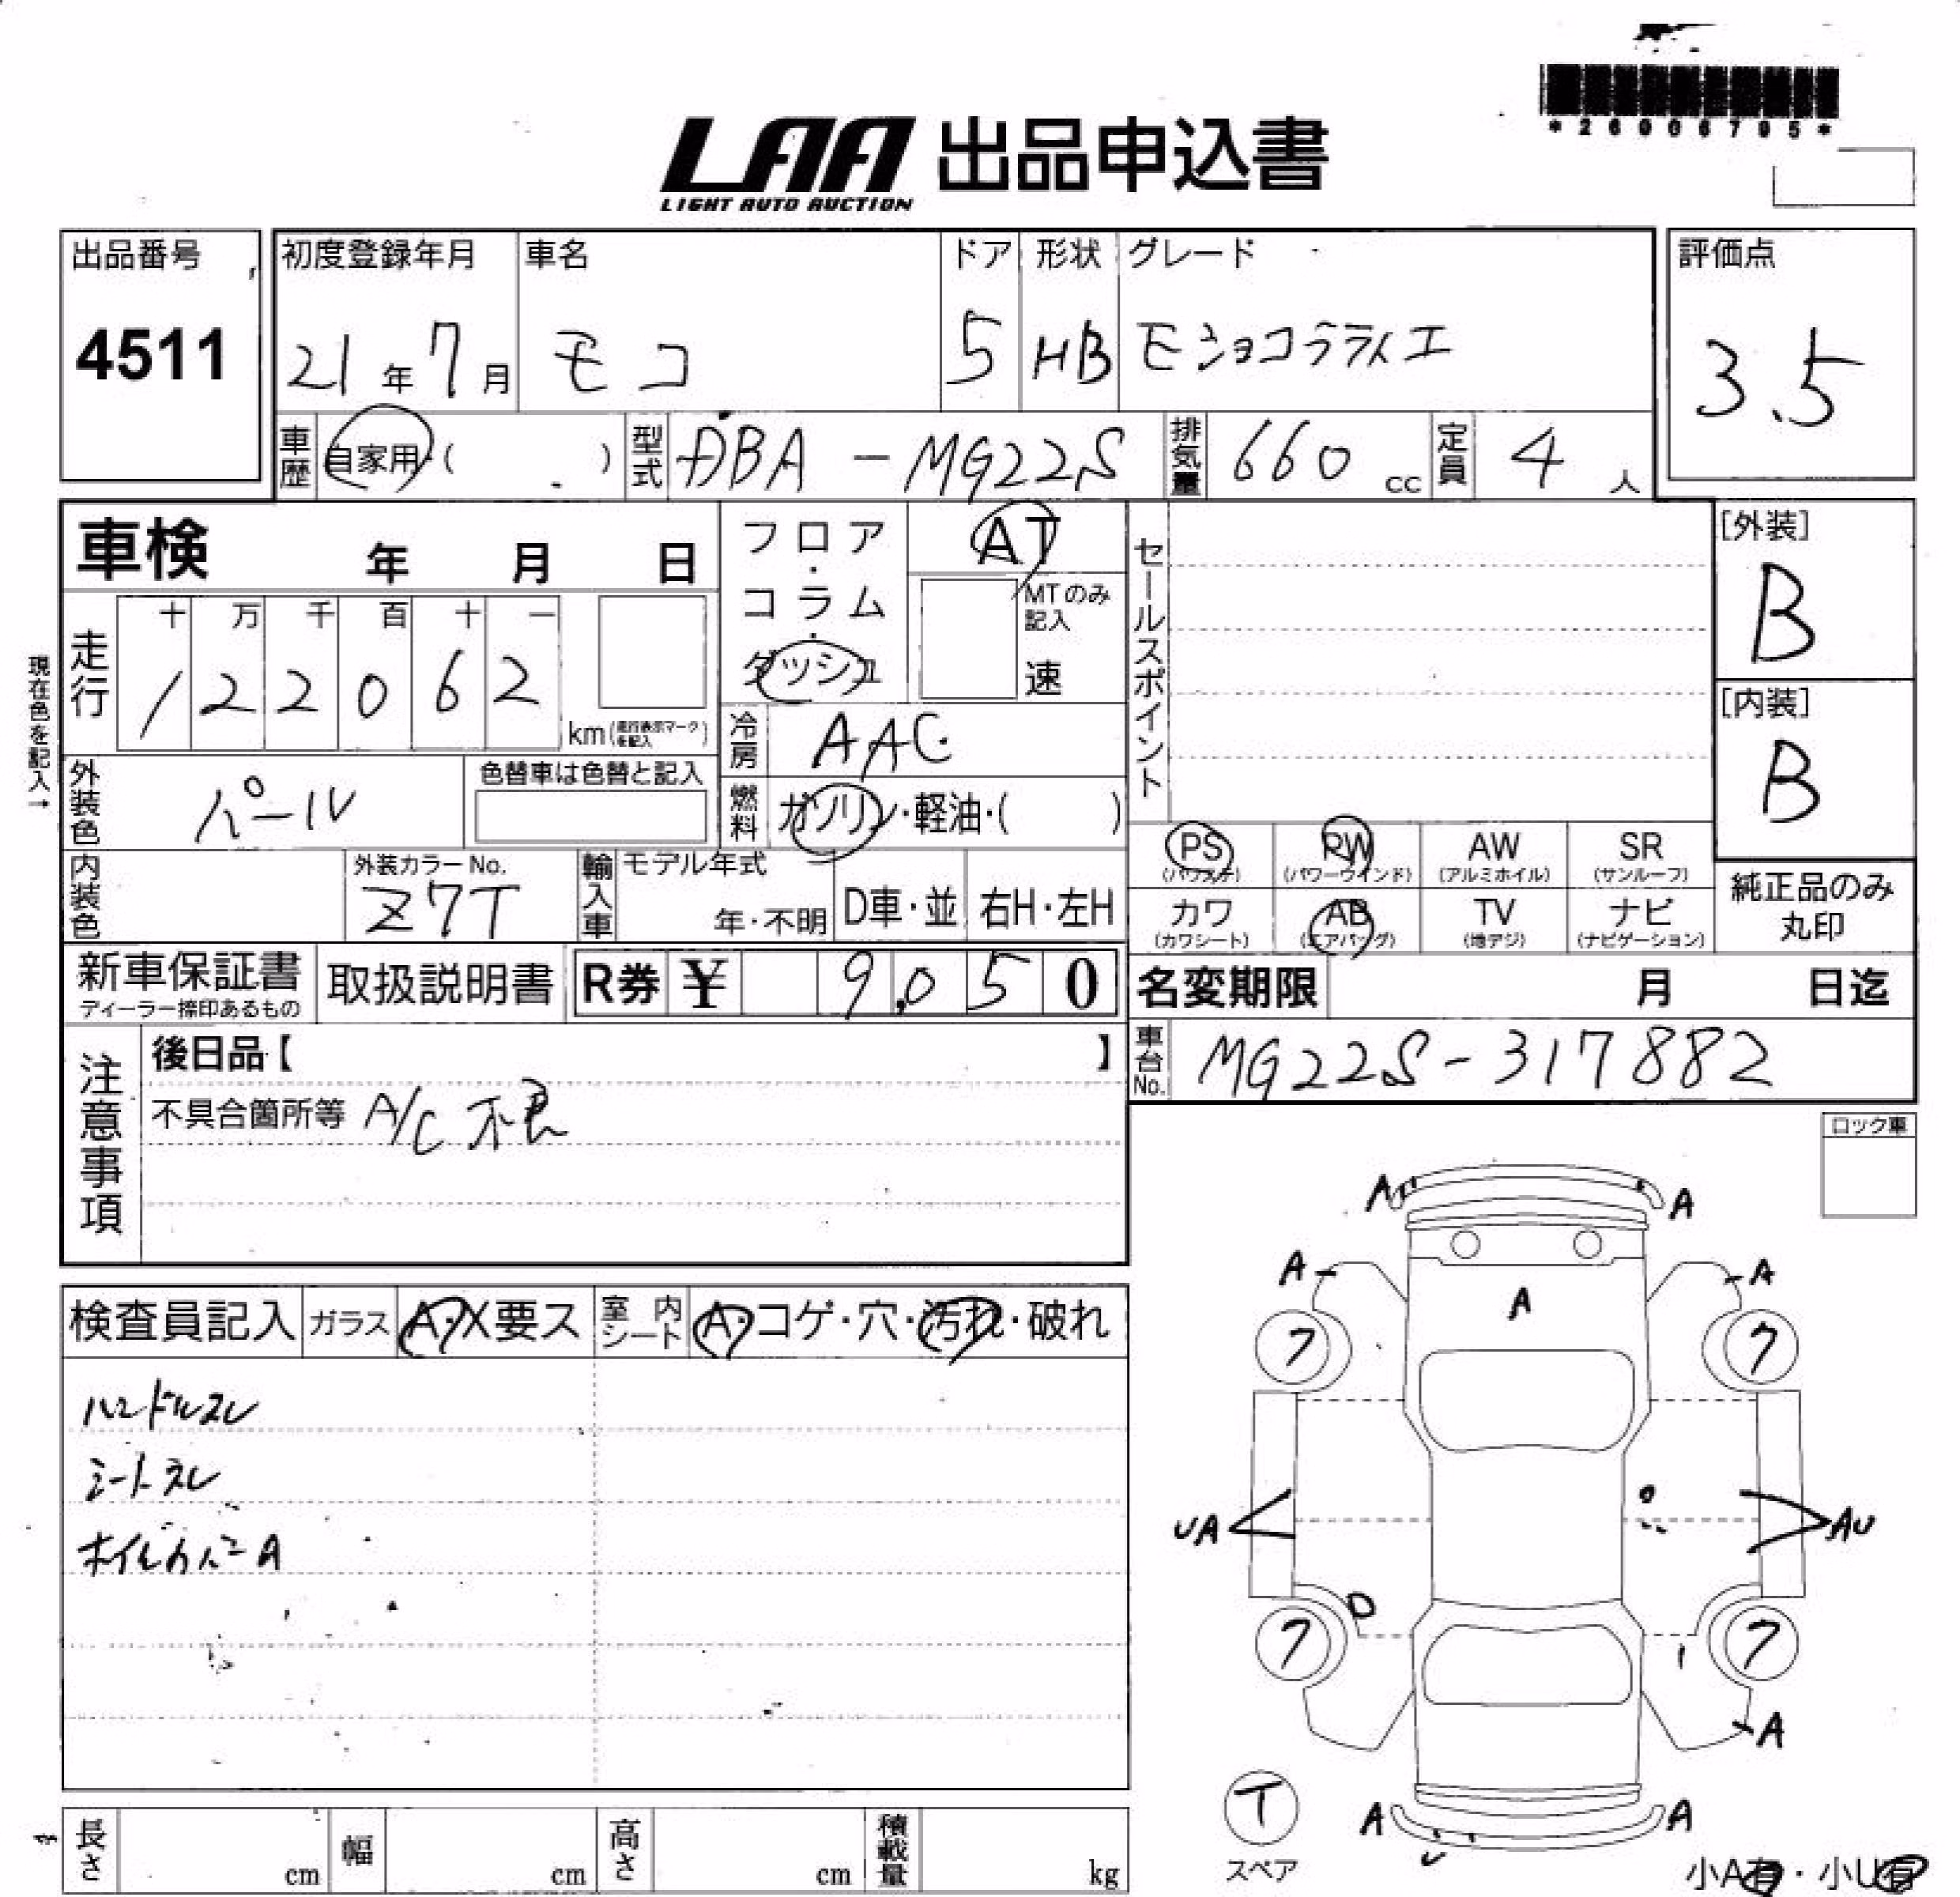 *26006705*
LAA 出品申込書
LIGHT AUTO AUCTION
出品番号
4511
初度登録年月
21年7月
車名
モコ
ドア
5
形状
HB
グレード
Eショコラティエ
評価点
3.5
車歴
自家用・( )
型式
DBA-MG22S
排気量
660cc
定員
4人
車検 年 月 日
フロア・コラム・ダッシュ
AT
MTのみ記入
速
セールスポイント
[外装]
B
[内装]
B
現在色を記入→
走行
十 万 千 百 十 一
1 2 2 0 6 2
km(走行表示マークを記入)
冷房
AAC
燃料
ガソリン・軽油・( )
外装色
パール
色替車は色替と記入
内装色
外装カラーNo.
Z7T
輸入車
モデル年式
年・不明
D車・並
右H・左H
PS
(パワステ)
PW
(パワーウインド)
AW
(アルミホイル)
SR
(サンルーフ)
カワ
(カワシート)
AB
(エアバッグ)
TV
(地デジ)
ナビ
(ナビゲーション)
純正品のみ丸印
新車保証書
ディーラー捺印あるもの
取扱説明書
R券 ¥ 9,050
名変期限 月 日迄
車台No.
MG22S-317882
注意事項
後日品【 】
不具合箇所等 A/C 不良
ロック車
検査員記入
ガラス
A・X要ス
室内シート
A・コゲ・穴・汚れ・破れ
ハンドルスレ
シートスレ
ホイルカバーA
A
A
A
A
A
7
7
UA
AU
7
7
A
T
スペア
A
A
U
小A有・小U有
長さ cm
幅 cm
高さ cm
積載量 kg